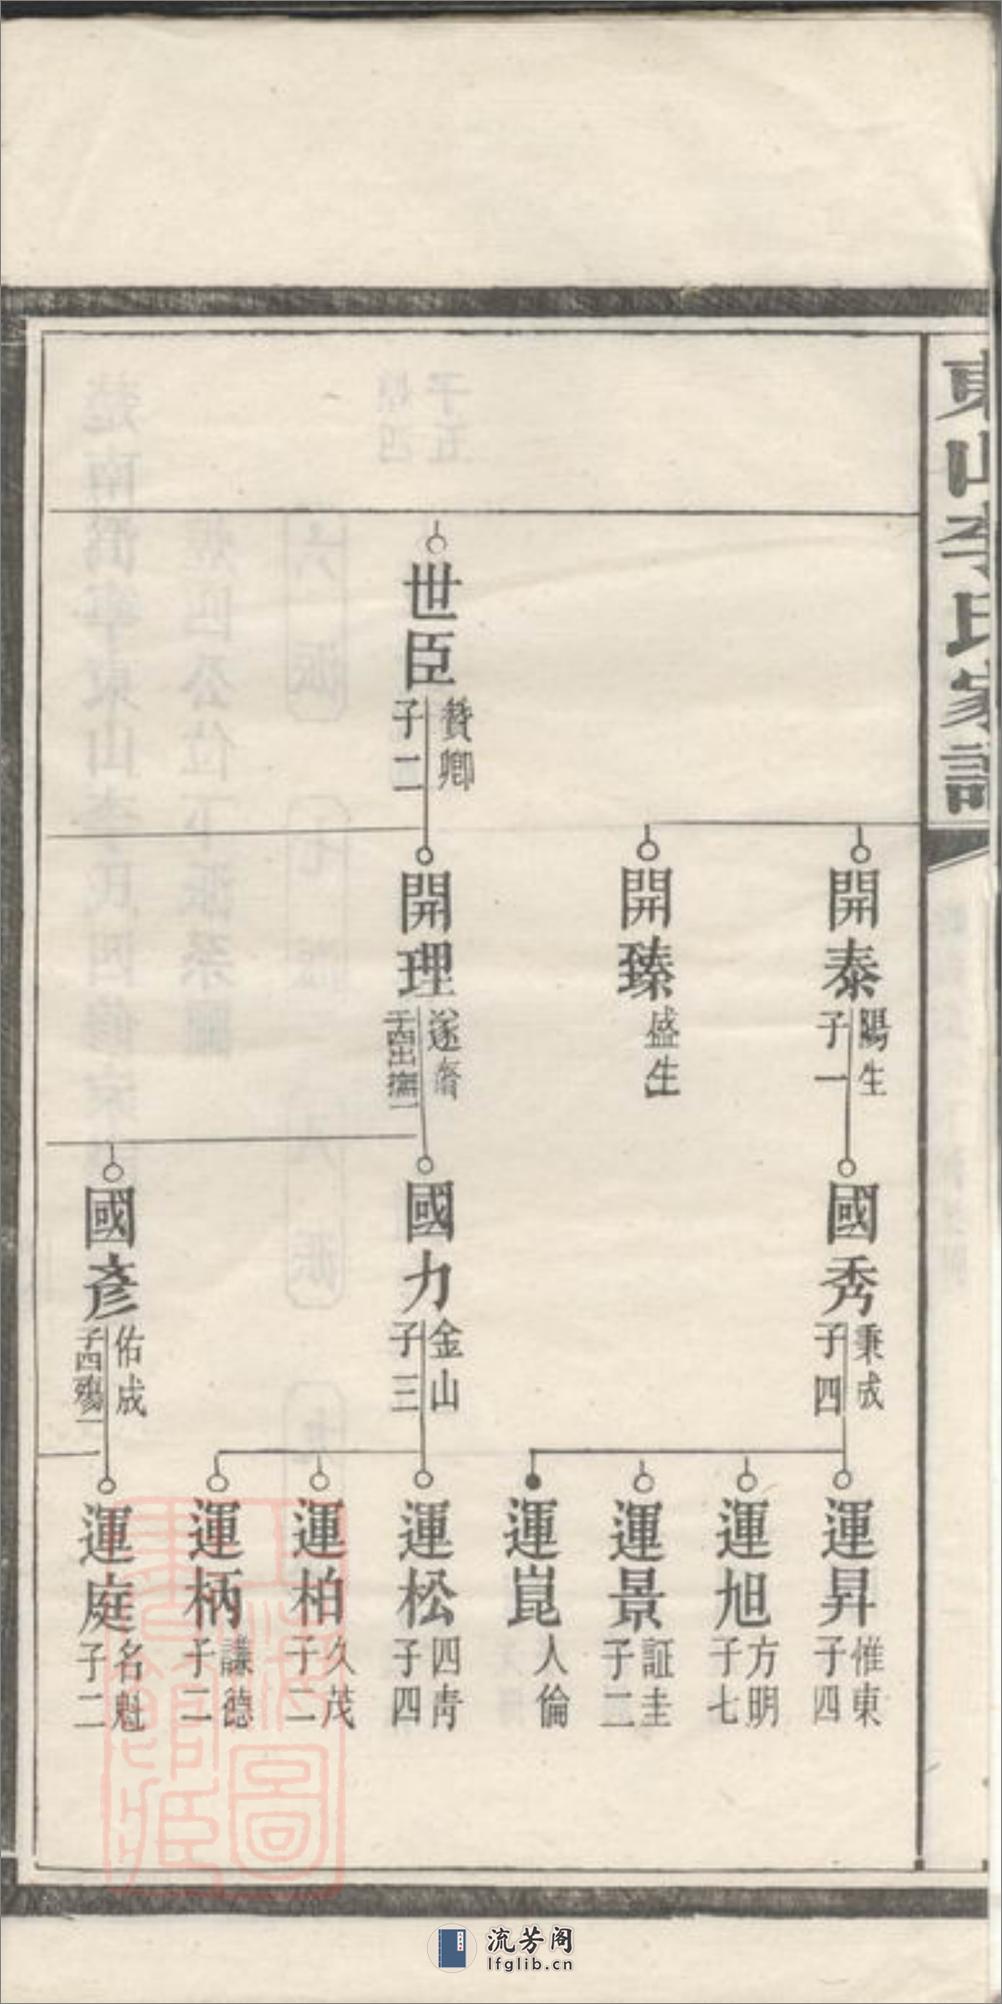 東山李氏家譜
世臣
贊卿
子二
開泰
陽生
子一
開臻
盛生
開理
遂齋
子四出撫一
國秀
秉成
子四
國力
金山
子三
國彥
佑成
子四殤一
運昇
惟東
子四
運旭
方明
子七
運景
証圭
子二
運崑
人倫
運松
四青
子四
運柏
久茂
子二
運柄
謙德
子二
運庭
名魁
子二
流芳阁
lfglib.cn